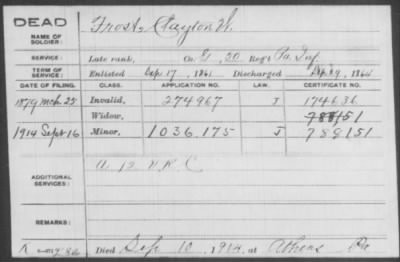 DEAD
NAME OF SOLDIER: Frost, Clayton W.
SERVICE: Late rank, Co. G, 20 Reg't Pa. Inf
TERM OF SERVICE: Enlisted Sep. 17, 1861 Discharged Sep. 19, 1864
DATE OF FILING. CLASS. APPLICATION NO. LAW. CERTIFICATE NO.
1879 Mch. 25 Invalid, 274967 J 174636
Widow, 788151
1914 Sept 16 Minor, 1036.175 J 788151
ADDITIONAL SERVICES: A 12 V.R.C
REMARKS:
Died Sep 10, 1914, at Athens Pa